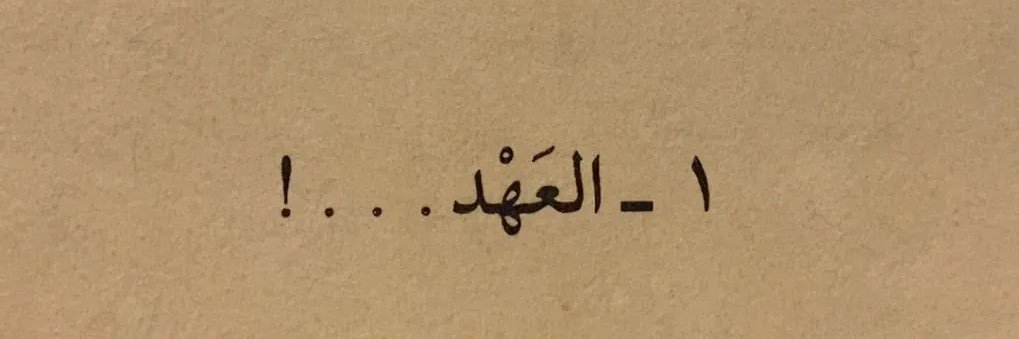 ١ ـ العَهْد . . . !